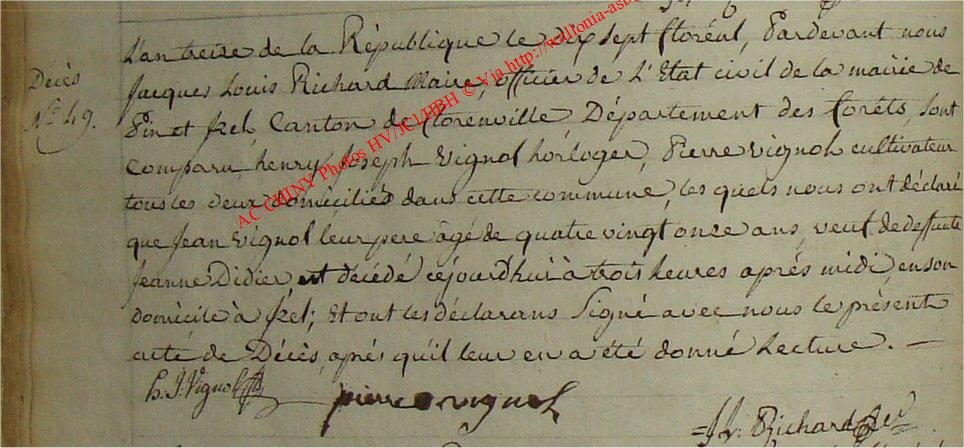 L'an treize de la République le dix sept floréal, Pardevant nous
Décès
N.º 49.
Jacques Louis Richard Maire, officier de L'Etat civil de la mairie de
Pin et Izel, Canton de florenville, Département des forêts, sont
Comparu, henry Joseph Vignol horloger, Pierre Vignol cultivateur
tous les deux domiciliés dans cette commune, les quels nous ont déclaré
que Jean Vignol leur pere âgé de quatre vingt onze ans, veuf de deffunte
Jeanne Didier est décédé cejourd'hui à trois heures aprés midi, en son
domicile à Izel; Et ont les déclarans Signé avec nous le présent
acte de Décès, aprés qu'il leur en a été donné Lecture. —
h. J. Vignol
pierre vignol
J. L. Richard
AC CHINY Photos HV/JCl/HBH © Via http://wallonia-asb